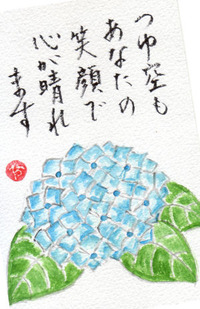 つゆ空も
あなたの
笑顔で
心が晴れ
ます